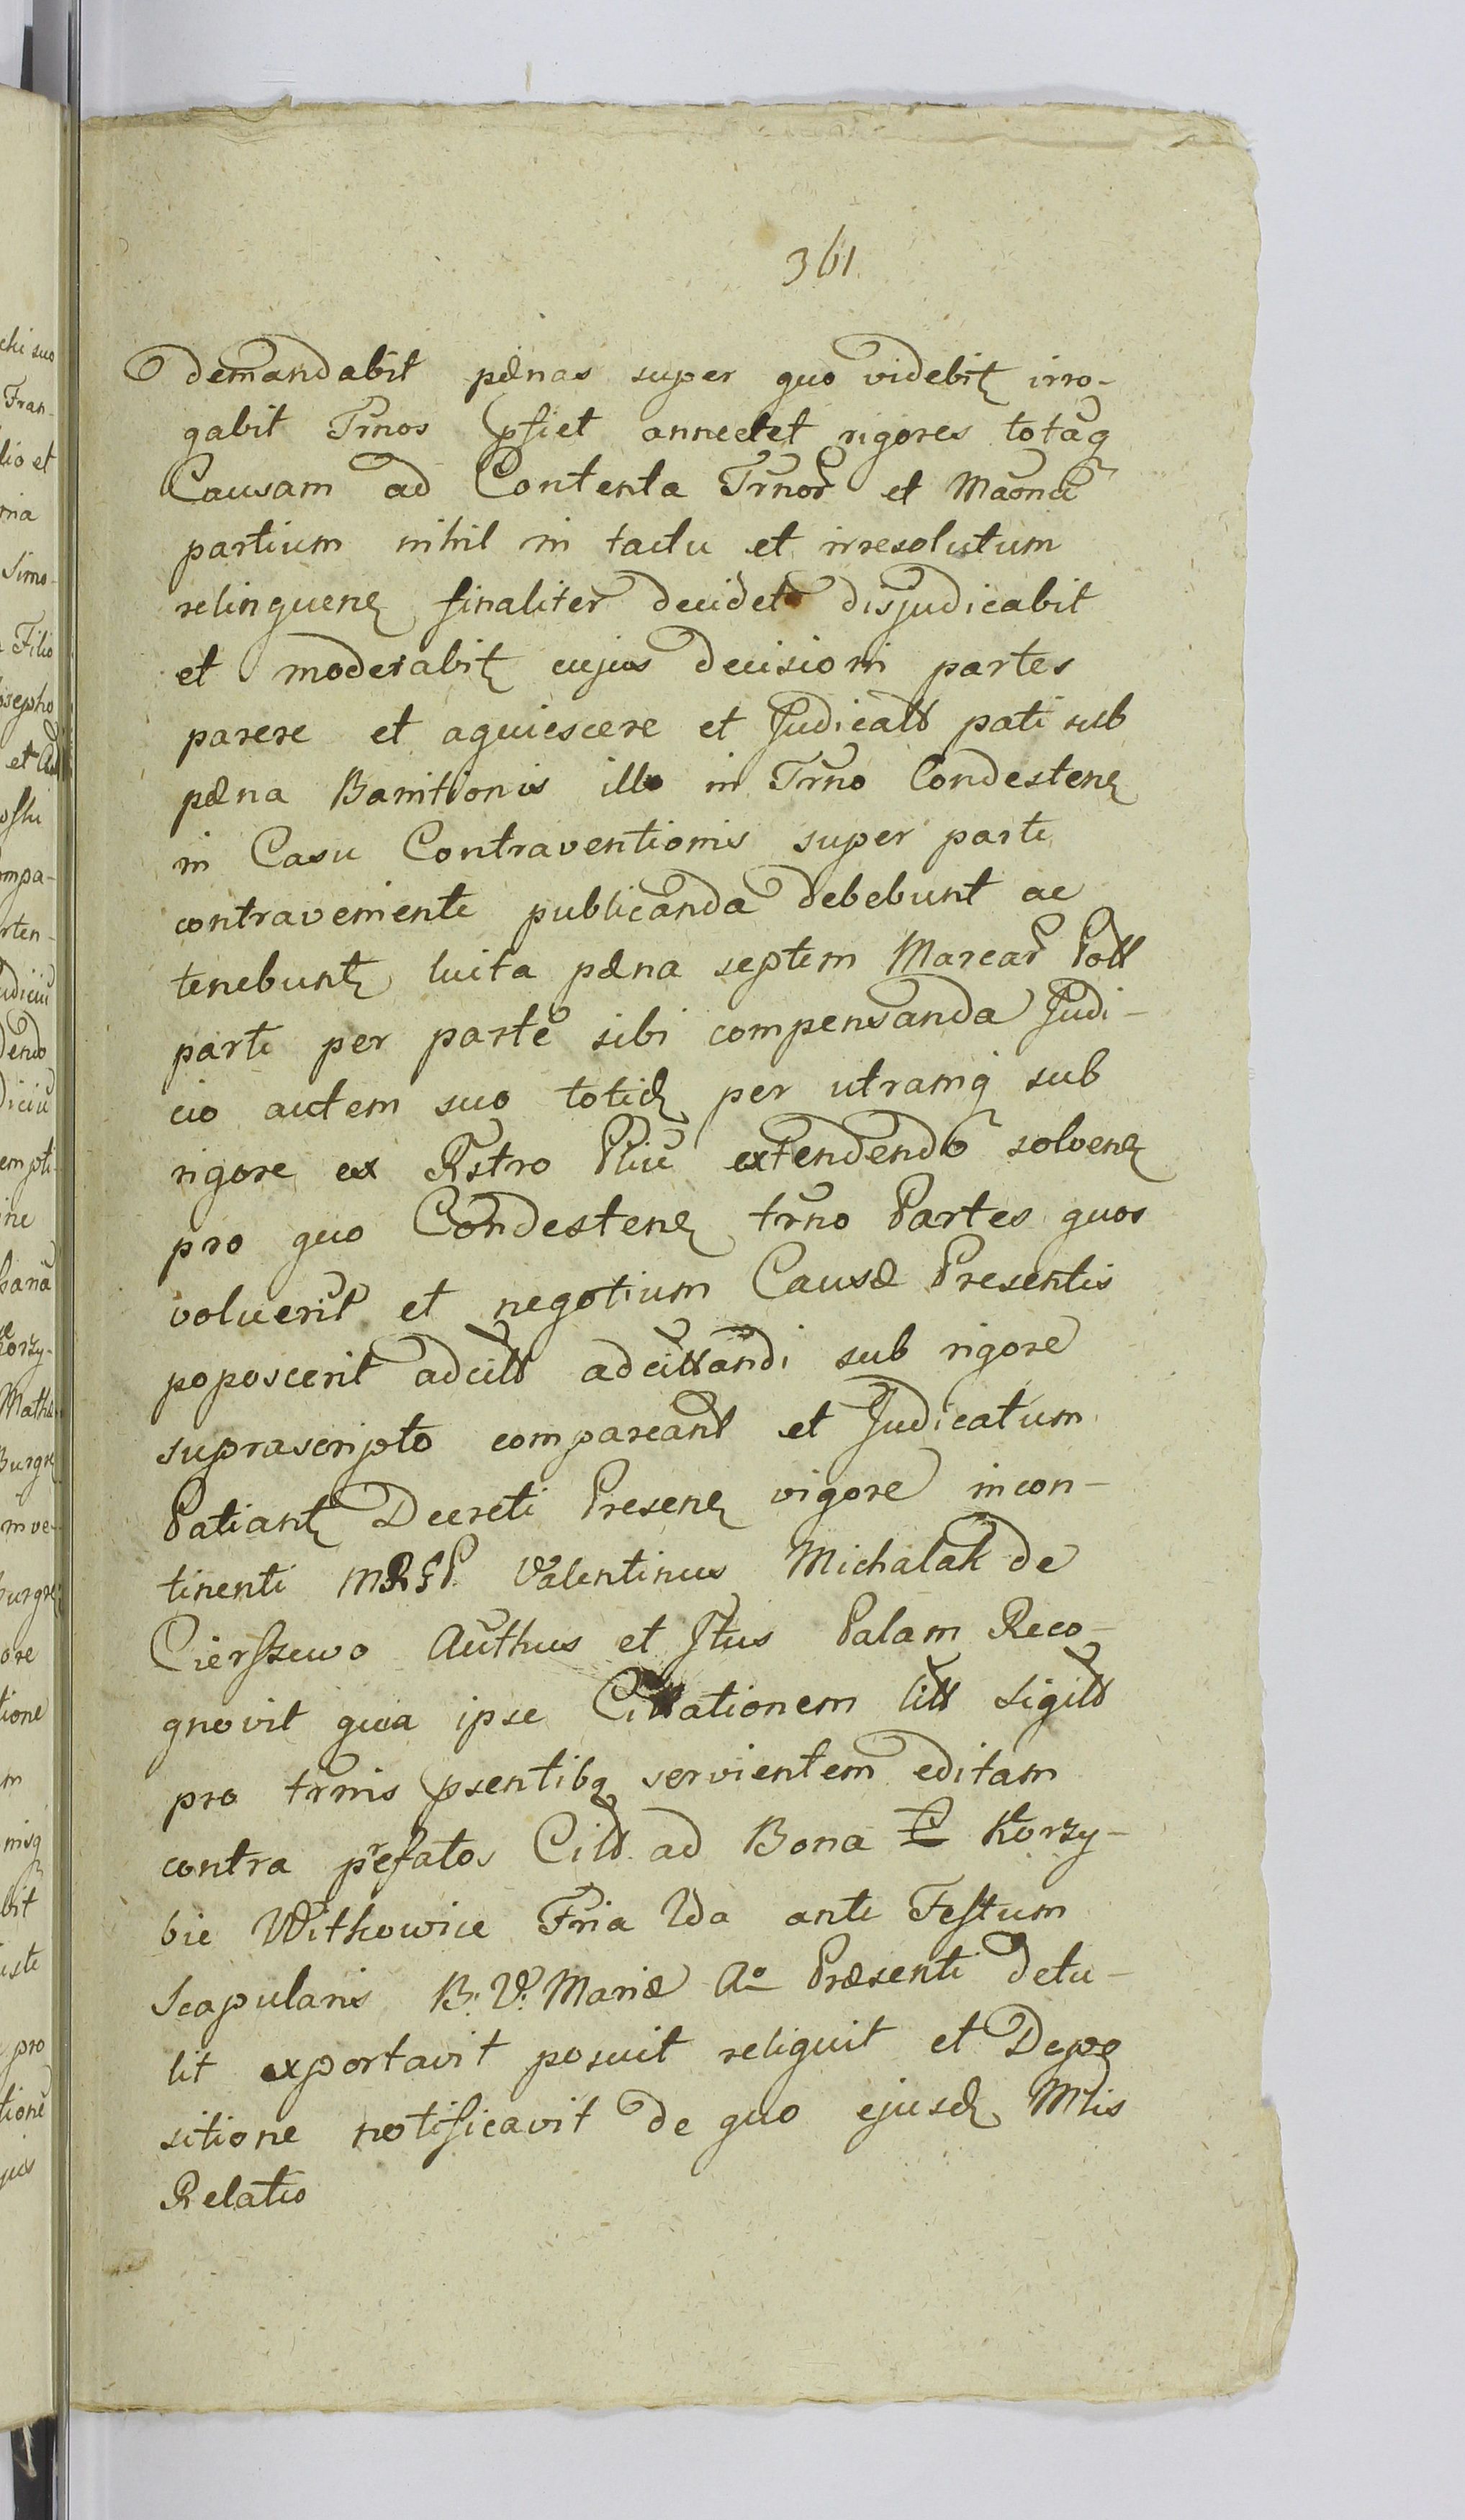 361.
demandabit pænas super quo videbitʒ irro-
gabit Trnos psiet annectet rigores totaq
Causam ad Contenta Trnor et Maona
partium nihil in tactu et irresolutum
relinquenʒ finaliter decidet disjudicabit
et moderabitʒ cujus decisioni partes
parere et aquiescere et Judicatt pati sub
pæna Banitionis illo in Trno Condestenʒ
in Casu Contraventionis super parte
contraveniente publicanda debebunt ac
tenebuntʒ luita pæna septem Marcar Poll
parti per parte sibi compensanda Judi-
cio autem suo totidʒ per utramq sub
rigore ex Rstro Pliu extendendo solvenʒ
pro quo Condestenʒ trno Partes quos
voluerit et negotium Causæ Presentis
poposcerit adcitt adcittandi sub rigore
suprascripto compareant et Judicatum
Patiantʒ Decreti Presenʒ vigore incon-
tinenti Valentinus Michalak de
Cierszewo Authus et Jtus Palam Reco-
gnovit quia ipse Cittationem litt Sigill
pro trnis psentibq servientem editam
contra p'efatos Citt. ad Bona Korzy-
bie Witkowice Fria 2da ante Festum
Scapularis B. V. Mariæ Ao Præsenti detu-
lit exportavit posuit reliquit et Depo
sitione notificavit de quo ejusdʒ Mlis
Relatio